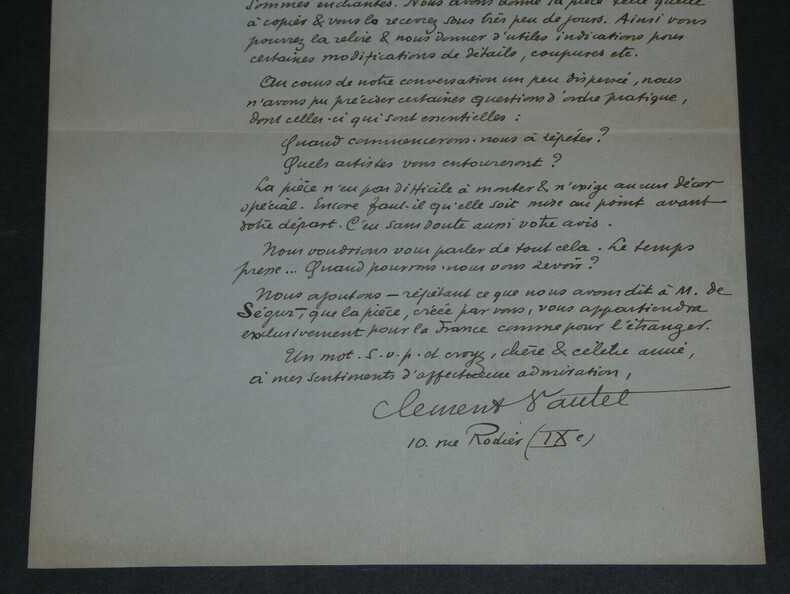 sommes enchantés. Nous avons donné la pièce telle quelle
à copier & vous la recevrez sous très peu de jours. Ainsi vous
pourrez la relire & nous donner d'utiles indications pour
certaines modifications de détails, coupures etc.
Au cours de notre conversation un peu dispersé, nous
n'avons pu préciser certaines questions d'ordre pratique,
dont celles-ci qui sont essentielles :
Quand commencerons-nous à répéter ?
Quels artistes vous entoureront ?
La pièce n'est pas difficile à monter & n'exige aucun décor
spécial. Encore faut-il qu'elle soit mise au point avant
votre départ. C'est sans doute aussi votre avis.
Nous voudrions vous parler de tout cela. Le temps
presse... Quand pourrons-nous vous revoir ?
Nous ajoutons — répétant ce que nous avons dit à M. de
Ségur —, que la pièce, créée par vous, vous appartiendra
exclusivement pour la France comme pour l'étranger.
Un mot. s.v.p. et croyez, chère & célèbre amie,
à mes sentiments d'affectueuse admiration,
Clément Vautel
10. rue Rodier (IXe)